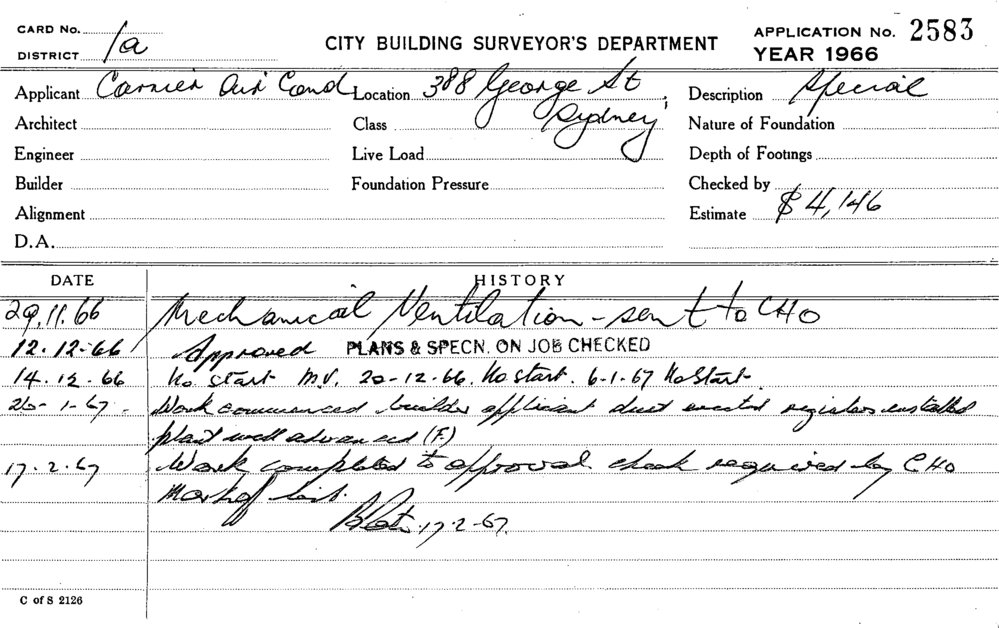 CARD No. 1a
DISTRICT
CITY BUILDING SURVEYOR'S DEPARTMENT
APPLICATION No. 2583
YEAR 1966
Applicant Carrier Air Cond Location 388 George St Description Special
Architect Class Sydney Nature of Foundation
Engineer Live Load Depth of Footings
Builder Foundation Pressure Checked by
Alignment Estimate $4,146
D.A.
DATE HISTORY
29.11.66 Mechanical Ventilation - sent to CHO
12.12.66 Approved PLANS & SPECN. ON JOB CHECKED
14.12.66 No start M.V. 20-12-66. No start. 6-1-67 No Start
20-1-67. Work commenced builder applicant duct erected registers installed
plant well advanced (F.)
17.2.67 Work completed to approval. check required by CHO
Mark off list.
17-2-67.
C of S 2126